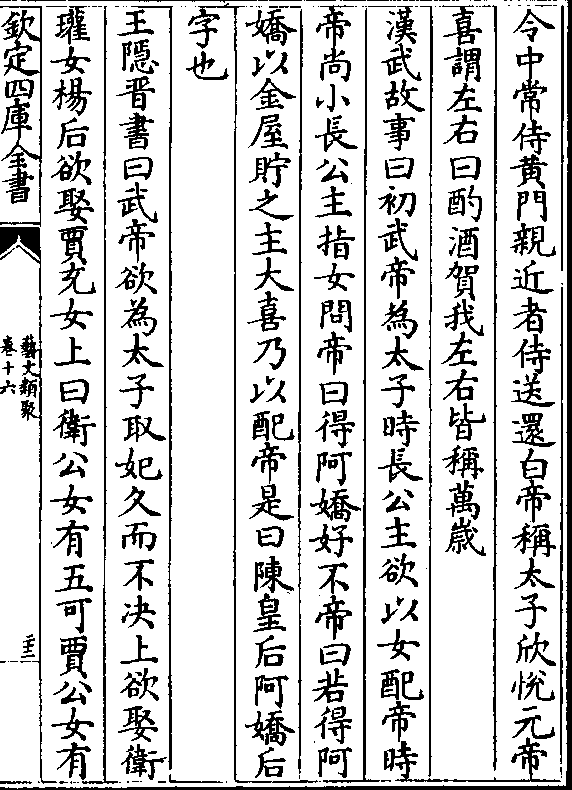 令中常侍黄門親近者侍送還白帝稱太子欣悅元帝
喜謂左右曰酌酒賀我左右皆稱萬歲
漢武故事曰初武帝為太子時長公主欲以女配帝時
帝尚小長公主指女問帝曰得阿嬌好不帝曰若得阿
嬌以金屋貯之主大喜乃以配帝是曰陳皇后阿嬌后
字也
王隱晉書曰武帝欲為太子取妃久而不決上欲娶衛
瓘女楊后欲娶賈充女上曰衛公女有五可賈公女有
欽定四庫全書
藝文類聚
卷十六
二十二